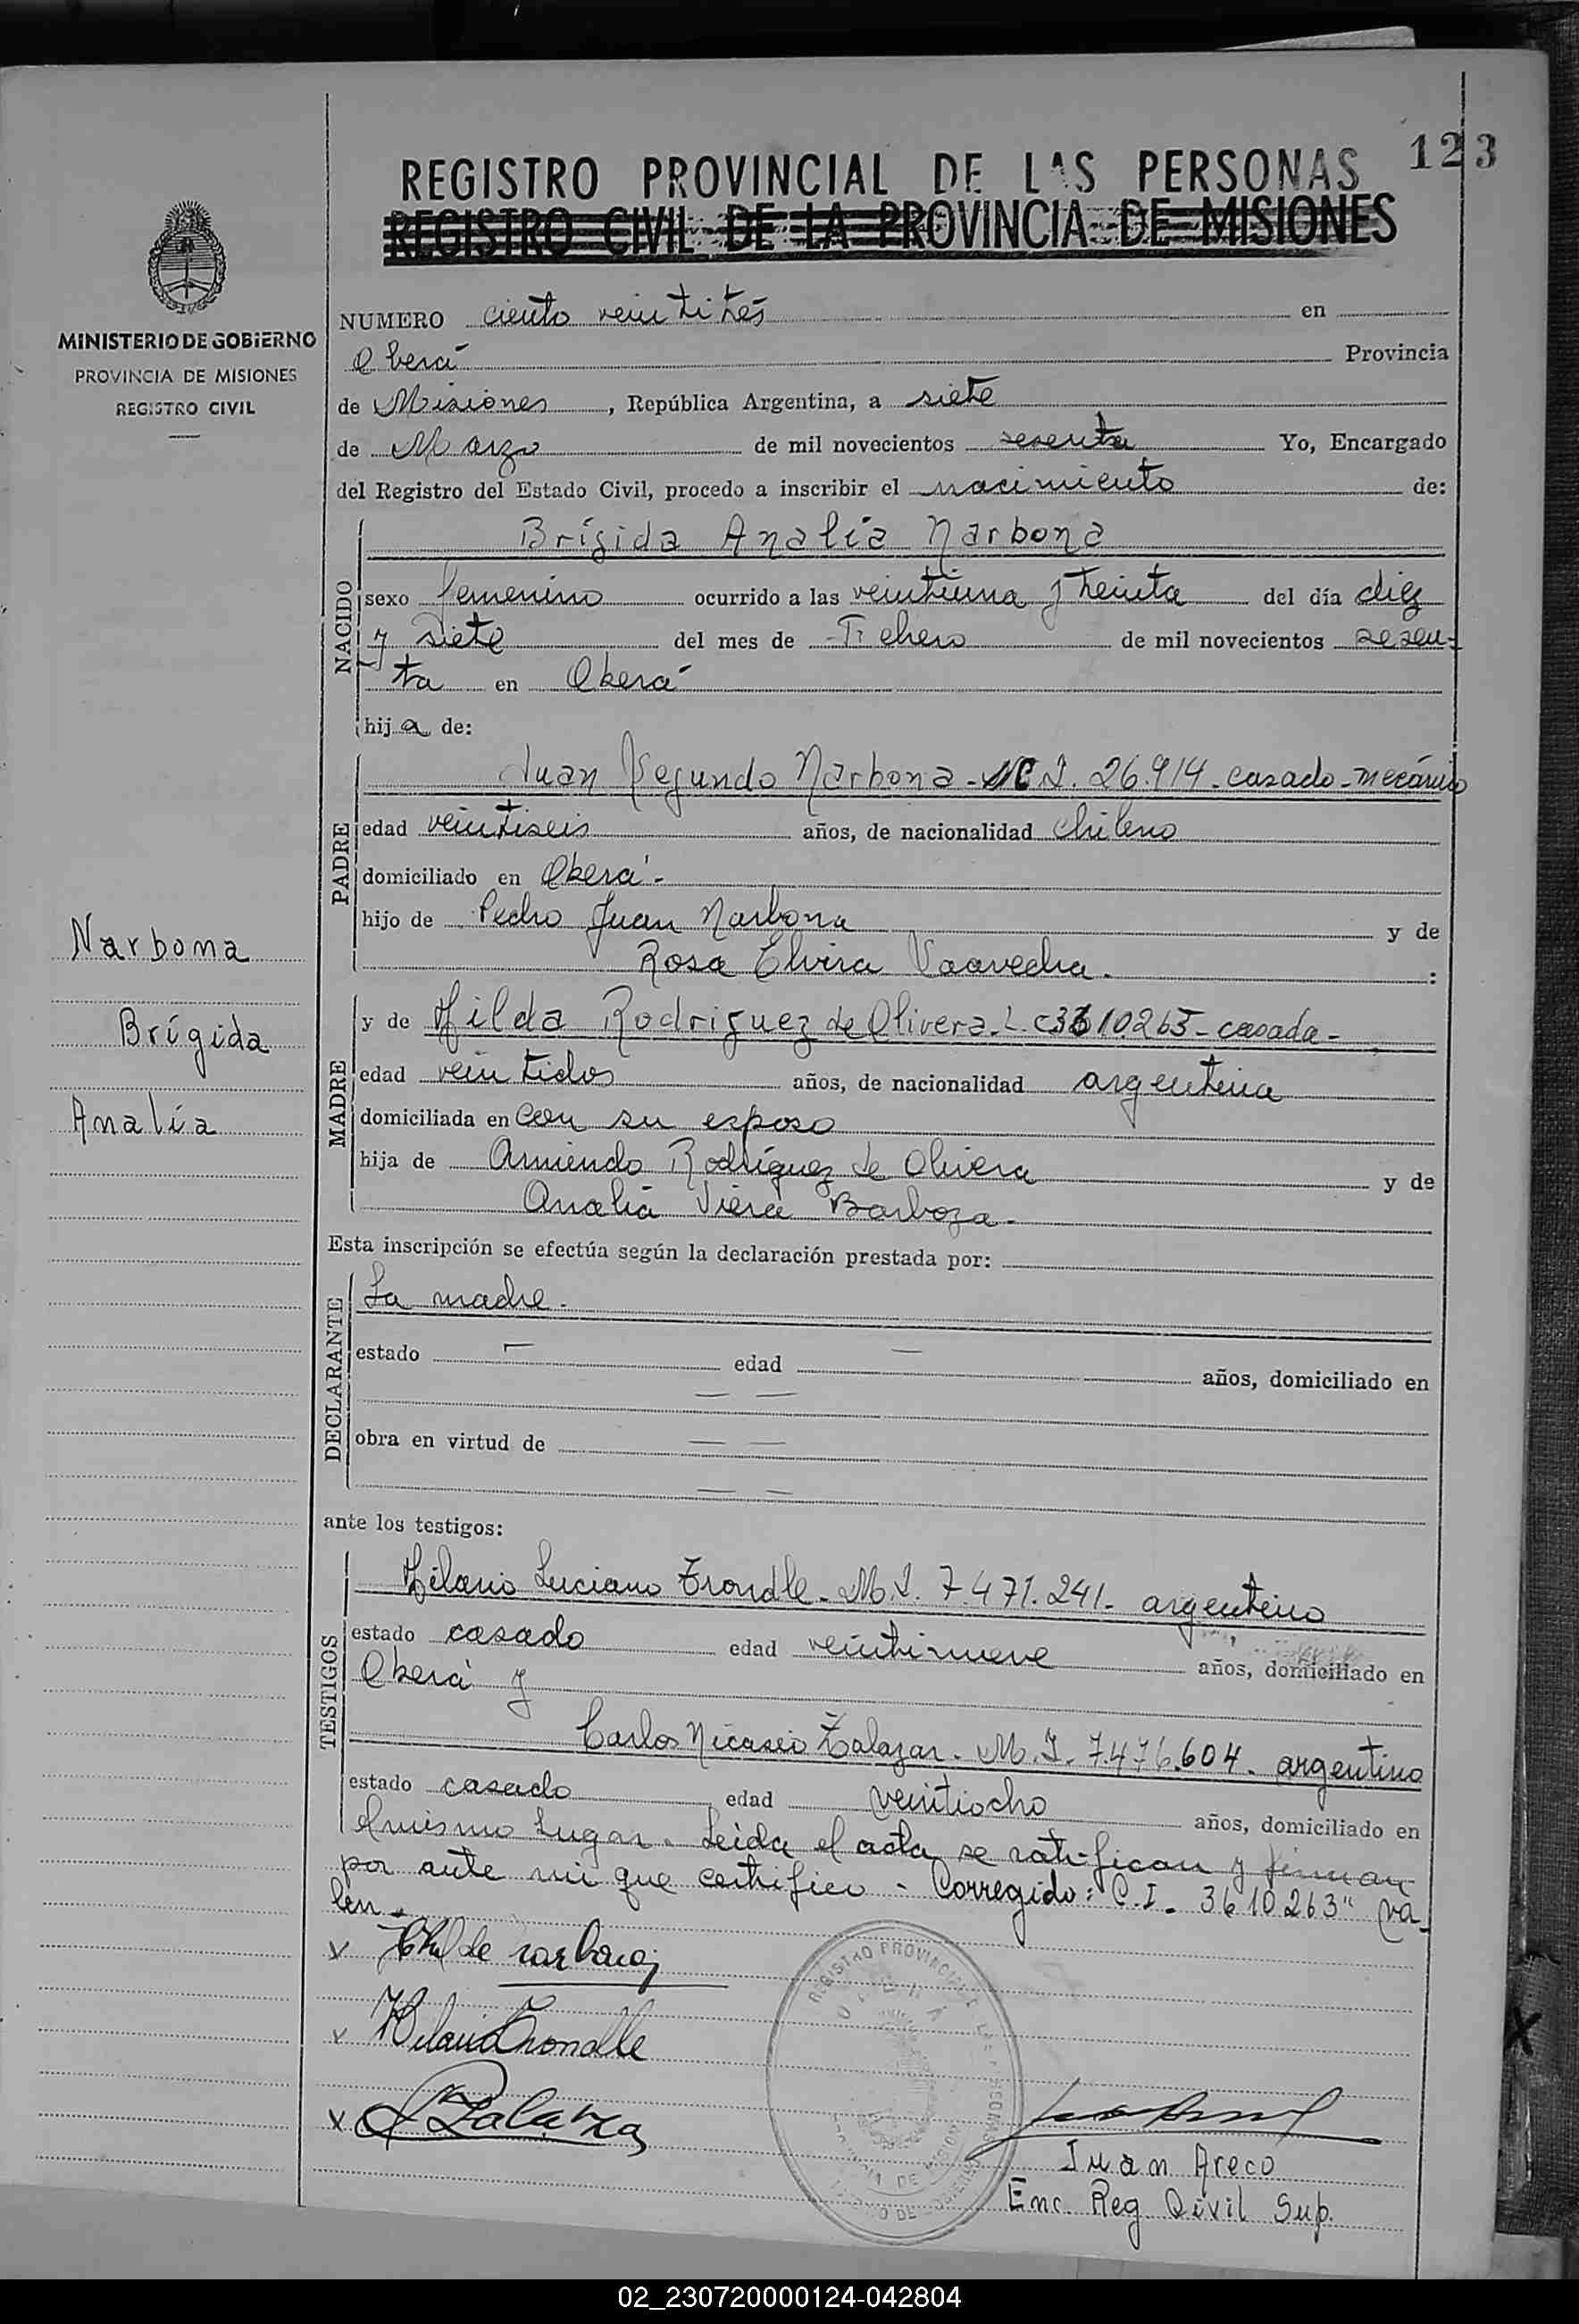 123
REGISTRO PROVINCIAL DE LAS PERSONAS
REGISTRO CIVIL DE LA PROVINCIA DE MISIONES
MINISTERIO DE GOBIERNO
PROVINCIA DE MISIONES
REGISTRO CIVIL
NUMERO ciento veintitrés en
Oberá Provincia
de Misiones, República Argentina, a siete
de Marzo de mil novecientos sesenta Yo, Encargado
del Registro del Estado Civil, procedo a inscribir el nacimiento de:
NACIDO
Brígida Analía Narbona
sexo femenino ocurrido a las veintiuna y treinta del día diez
y siete del mes de Febrero de mil novecientos sesen-
ta en Oberá
hija de:
PADRE
Juan Segundo Narbona - C.I. 26.914 - casado - mecánico
edad veintiseis años, de nacionalidad chileno
domiciliado en Oberá -
hijo de Pedro Juan Narbona y de
Rosa Elvira Vaavedra.
Narbona
Brígida
Analía
MADRE
y de Hilda Rodriguez de Olivera. L.C. 3610.263 - casada -
edad veintidos años, de nacionalidad argentina
domiciliada en con su esposo
hija de Rodríguez de Olivera y de
Analia Viera Barboza -
Esta inscripción se efectúa según la declaración prestada por:
DECLARANTE
La madre.
estado — edad — años, domiciliado en
— —
obra en virtud de — —
— —
ante los testigos:
TESTIGOS
Hilario Luciano Trondle - M.I. 7.471.241 - argentino
estado casado edad veintinueve años, domiciliado en
Oberá y
Carlos Nicasio Zalazar - M.I. 7.476.604 - argentino
estado casado edad veintiocho años, domiciliado en
el mismo lugar. Leida el acta se ratifican y firman
por ante mi que certifico - Corregido: C.I. 3610263" va-
len.
x Hilde Narbona
x Hilario Trondle
x Zalazar
REGISTRO PROVINCIAL DE LAS PERSONAS
OBERÁ
Juan Areco
Enc. Reg. Civil Sup.
02_230720000124-042804